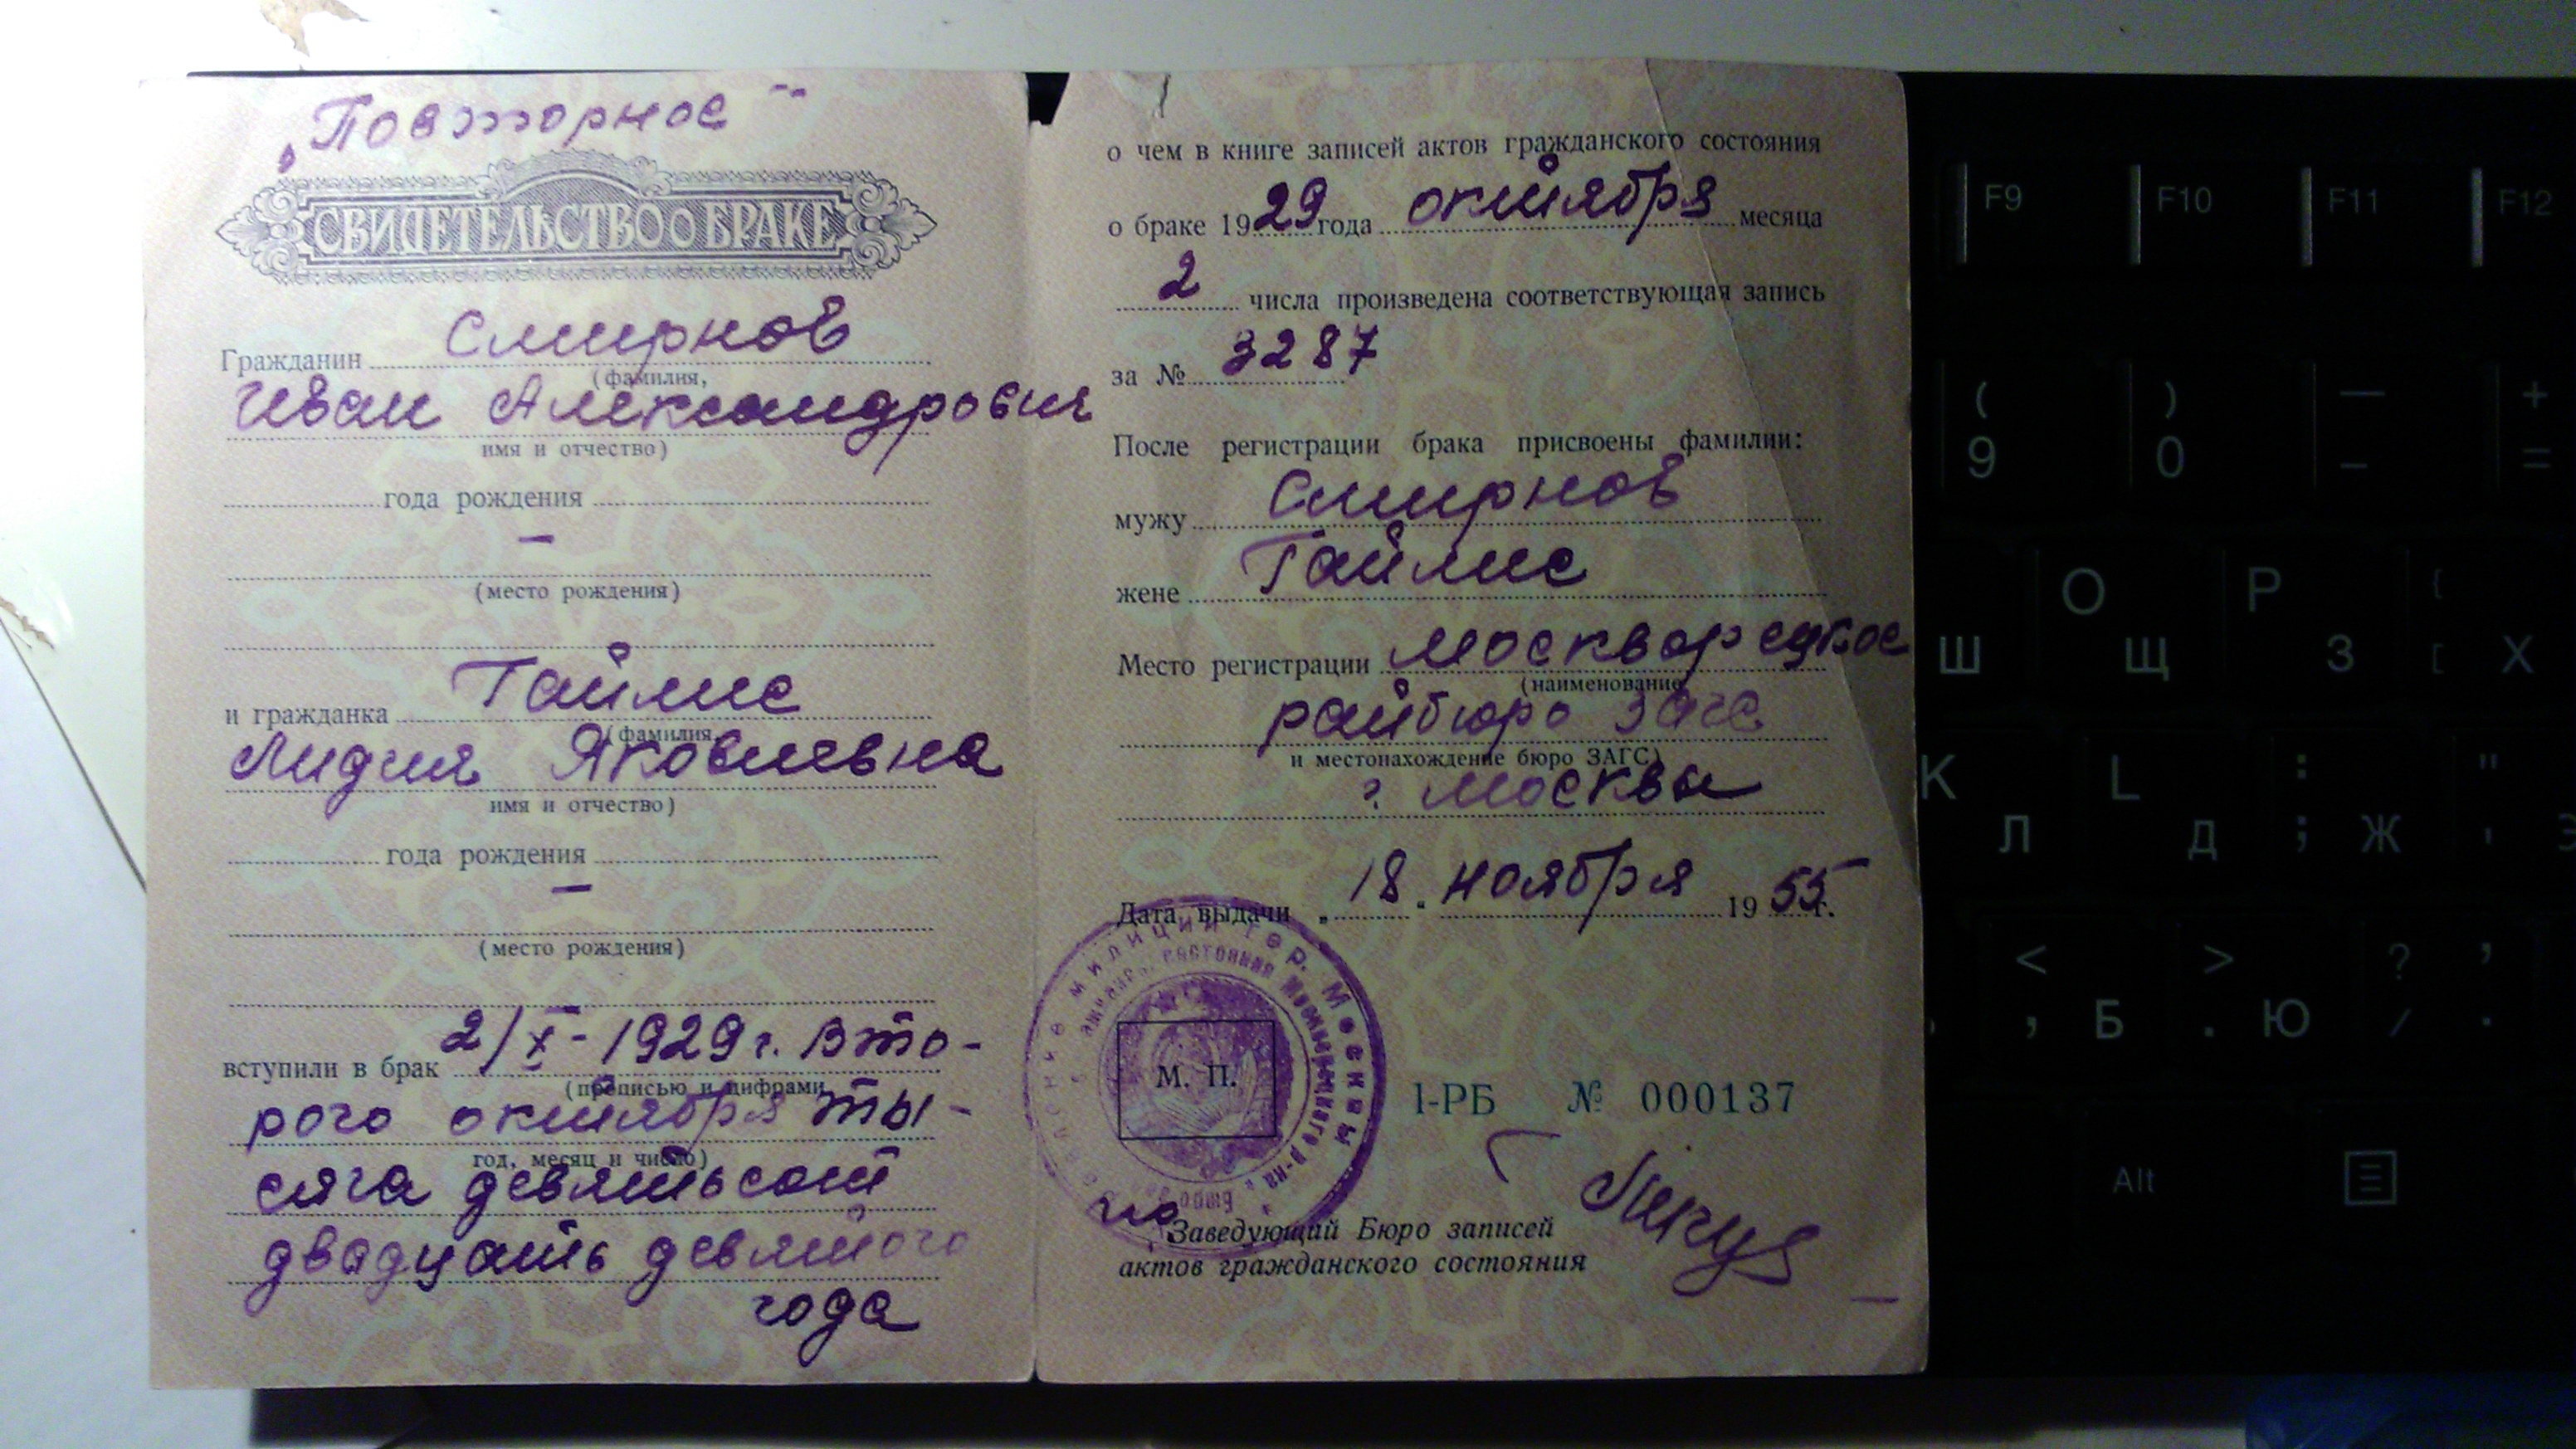 „Повторное"
СВИДЕТЕЛЬСТВО О БРАКЕ
Гражданин Смирнов
(фамилия,
Иван Александрович
имя и отчество)
года рождения
—
(место рождения)
и гражданка Таймис
(фамилия,
Лидия Яковлевна
имя и отчество)
года рождения
—
(место рождения)
вступили в брак 2/X-1929 г. Вто-
(прописью и цифрами
рого октября ты-
год, месяц и число)
сяча девятьсот
двадцать девятого
года
о чем в книге записей актов гражданского состояния
о браке 1929 года октября месяца
2 числа произведена соответствующая запись
за № 3287
После регистрации брака присвоены фамилии:
мужу Смирнов
жене Таймис
Место регистрации Москворецкое
(наименование
райбюро загс
и местонахождение бюро ЗАГС)
г. Москвы
Дата выдачи „18" ноября 1955 г.
милиции гор. Москвы
М. П.
I-РБ № 000137
Заведующий Бюро записей
актов гражданского состояния
F9 F10 F11 F12
( ) — +
9 0 – =
O P { [
Ш Щ З Х
K L : ; "  '
Л Д Ж Э
< > ? ,
, Б . Ю / .
Alt